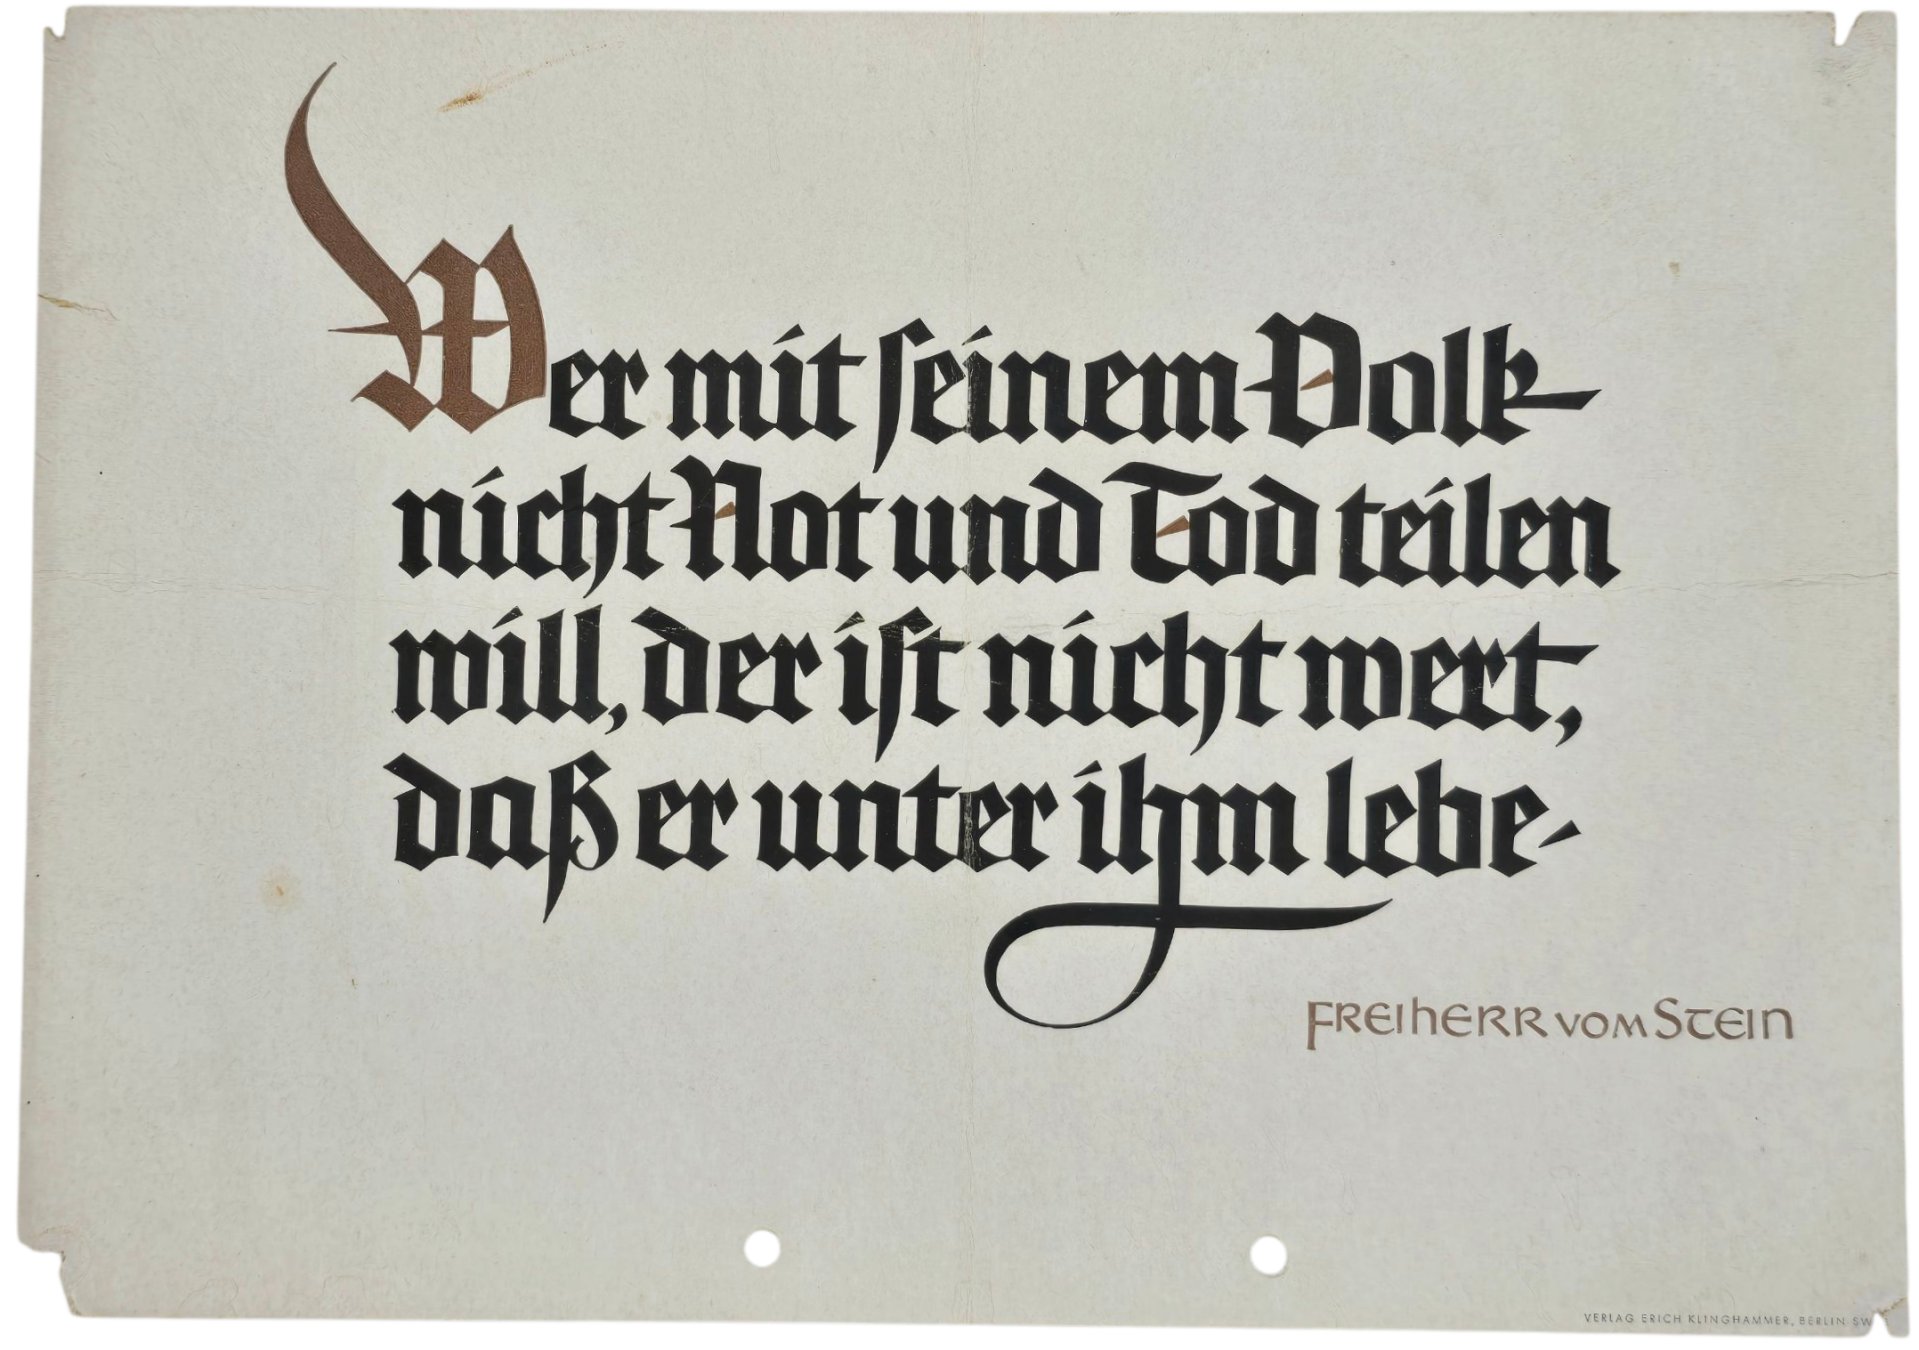 Wer mit seinem Volk
nicht Not und Tod teilen
will, der ist nicht wert,
daß er unter ihm lebe
FREIHERR VOM STEIN
VERLAG ERICH KLINGHAMMER, BERLIN SW